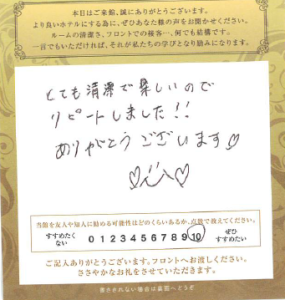 本日はご来館、誠にありがとうございます。
より良いホテルにする為に、ぜひあなた様の声をお聞かせください。
ルームの清潔さ、フロントでの接客…、何でも結構です。
一言でもいただければ、それが私たちの学びとなり励みになります。
とても清潔で楽しいので
リピートしました!!
ありがとうございます♡
当館を友人や知人に勧める可能性はどのくらいあるか、点数で教えてください。
すすめたくない 0 1 2 3 4 5 6 7 8 9 10 ぜひすすめたい
ご記入ありがとうございます。フロントへお渡しください。
ささやかなお礼をさせていただきます。